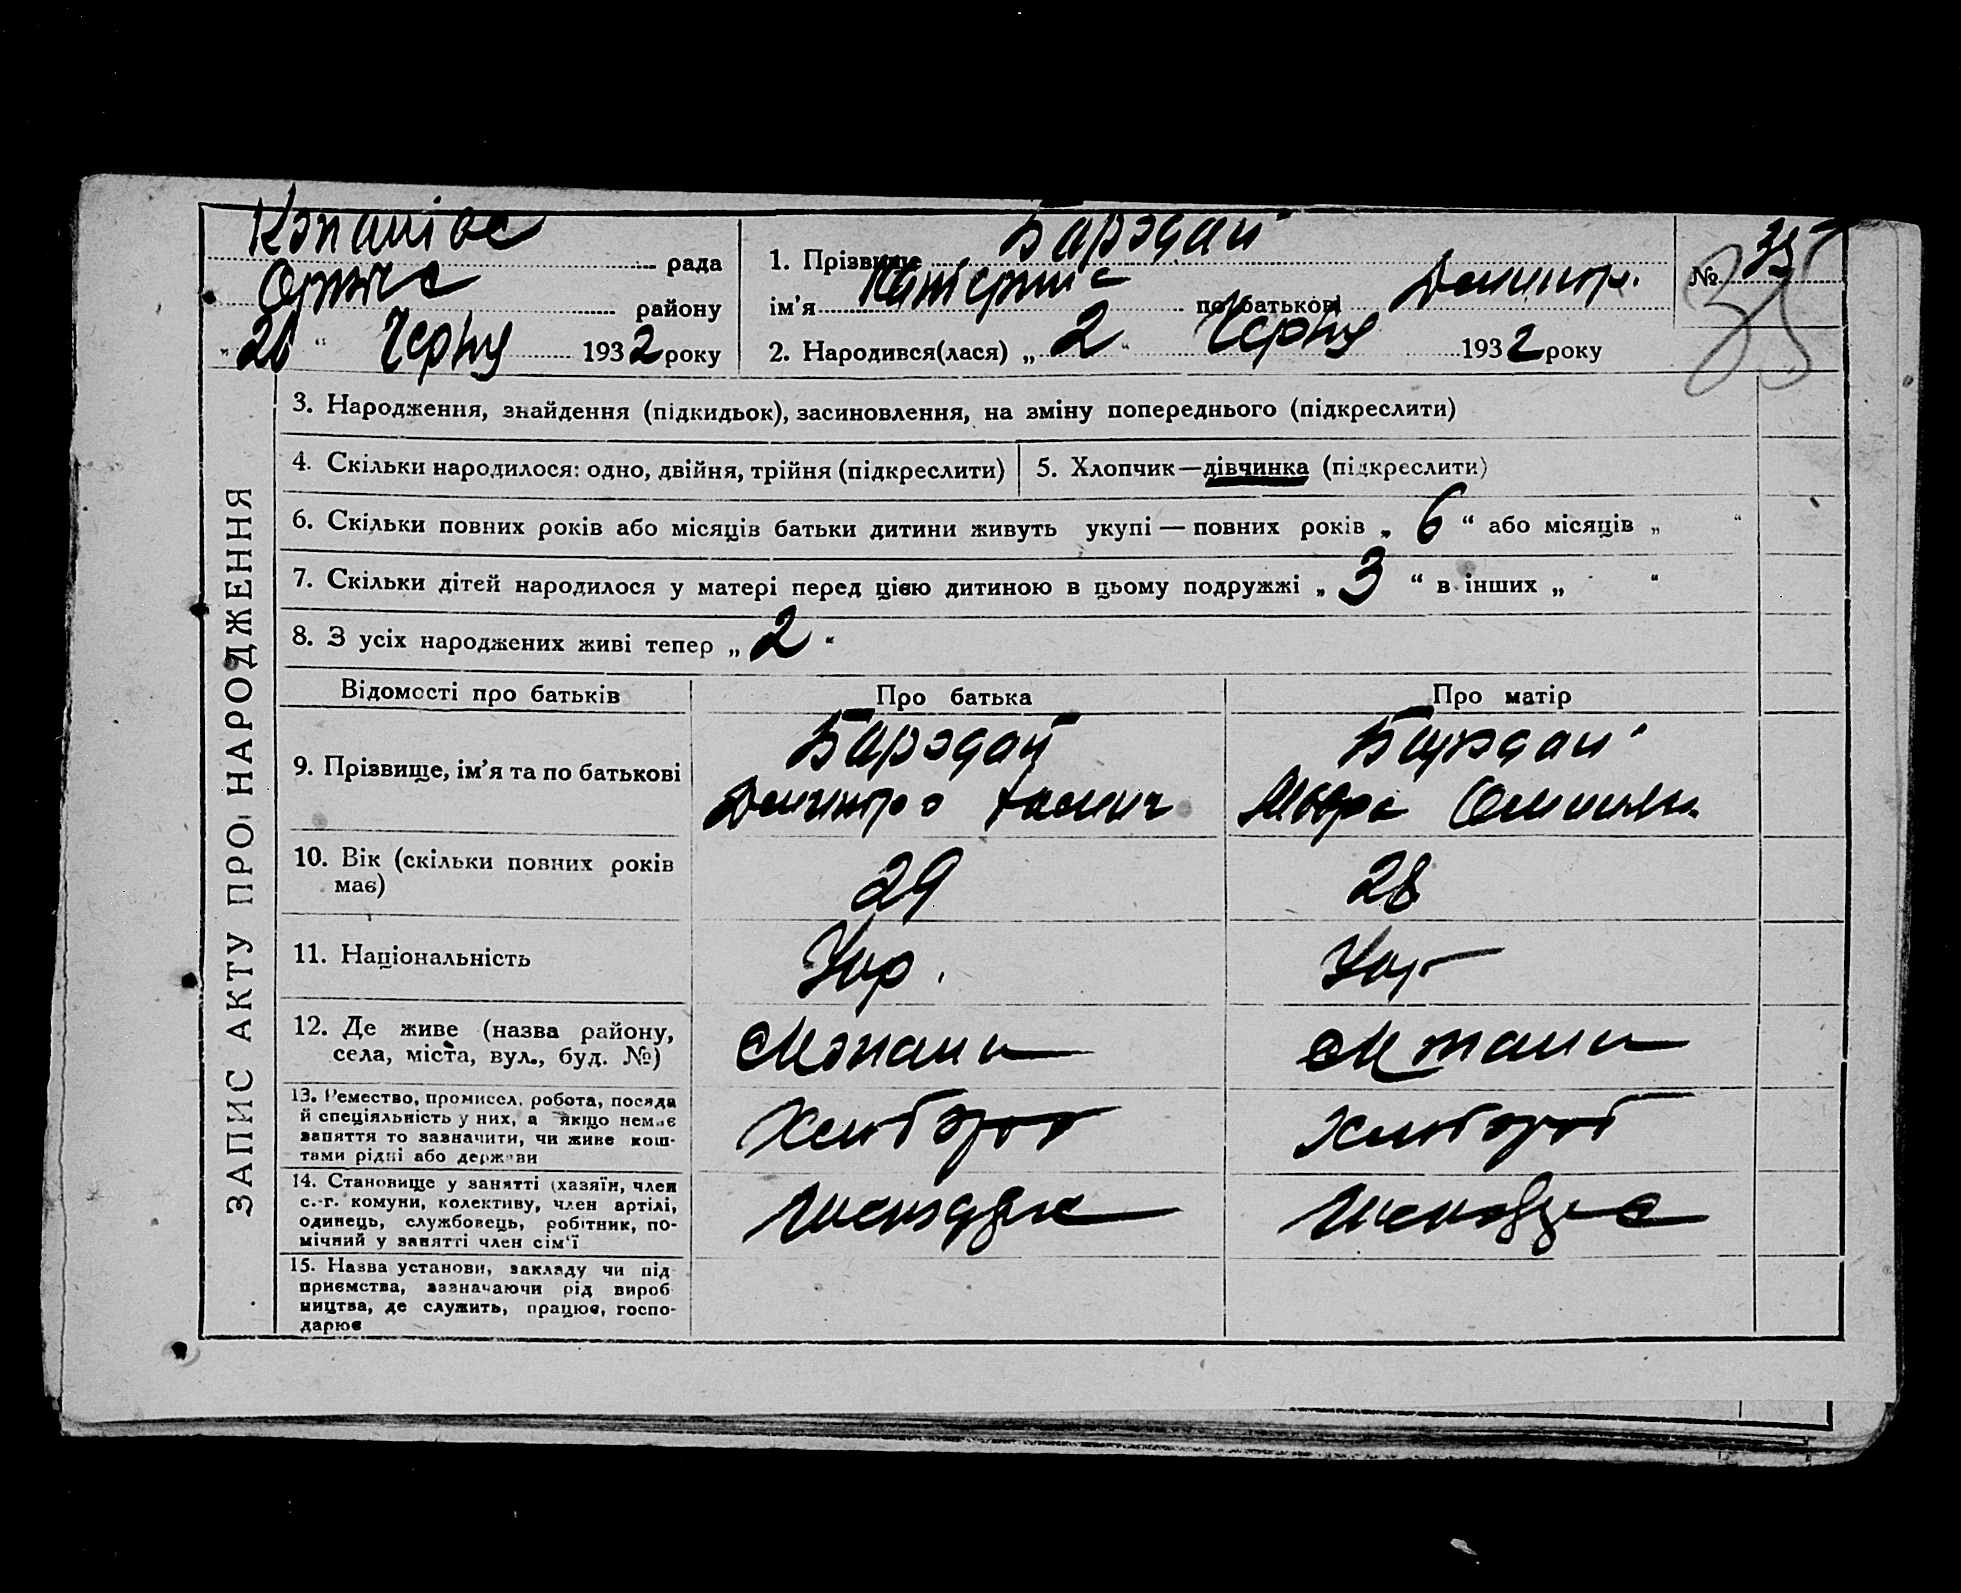 рада
району
„ 20 “ Черня 1932 року
1. Прізвище Бародай
ім’я Катерина по батькові Дмитр.
2. Народився(лася) „ 2 “ Черня 1932 року
№ 35
35
ЗАПИС АКТУ ПРО НАРОДЖЕННЯ
3. Народження, знайдення (підкидьок), засиновлення, на зміну попереднього (підкреслити)
4. Скільки народилося: одно, двійня, трійня (підкреслити)
5. Хлопчик—дівчинка (підкреслити)
6. Скільки повних років або місяців батьки дитини живуть укупі — повних років „ 6 “ або місяців „ “
7. Скільки дітей народилося у матері перед цією дитиною в цьому подружжі „ 3 “ в інших „ “
8. З усіх народжених живі тепер „ 2 “
Відомості про батьків
Про батька
Про матір
9. Прізвище, ім’я та по батькові
Бародай
Дмитро
Бародай
10. Вік (скільки повних років
має)
29
28
11. Національність
Укр.
Укр
12. Де живе (назва району,
села, міста, вул., буд. №)
13. Ремество, промисел, робота, посада
й спеціяльність у них, а якщо немає
заняття то зазначити, чи живе кош-
тами рідні або держави
Хлібороб
Хлібороб
14. Становище у занятті (хазяїн, член
с.-г. комуни, колективу, член артілі,
одинець, службовець, робітник, по-
мічний у занятті член сім'ї
15. Назва установи, закладу чи під
приємства, зазначаючи рід вироб
ництва, де служить, працює, госпо-
дарює